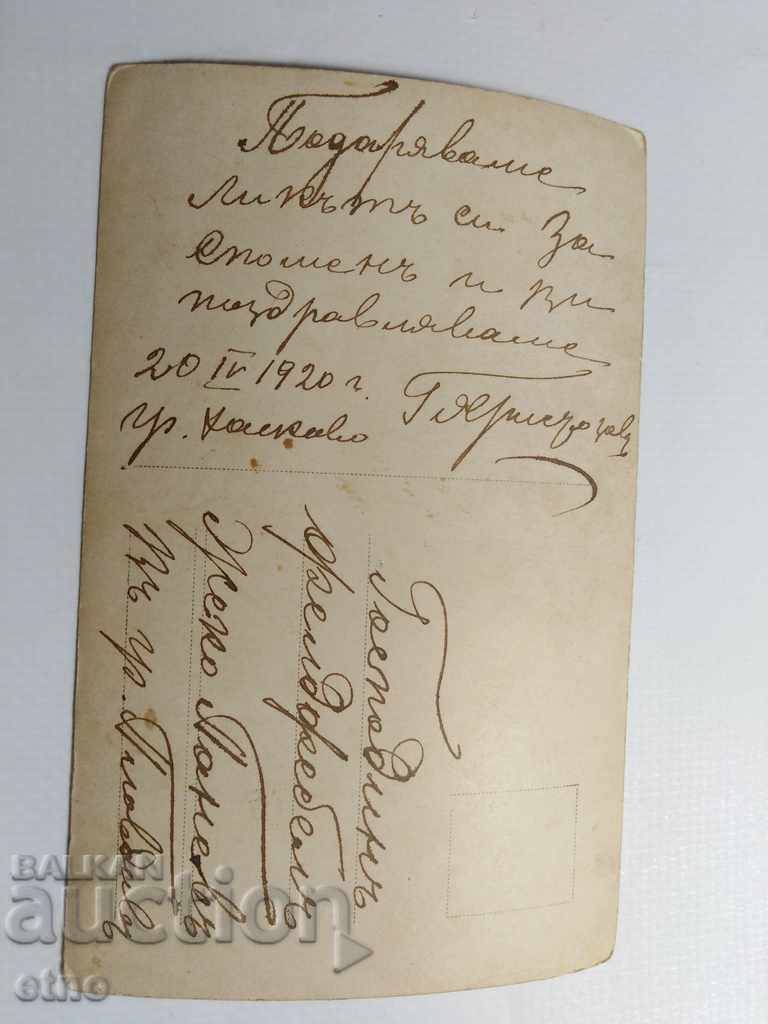 Подаряваме
ликътъ си за
споменъ и ви
поздравляваме
20 IV 1920 г.
гр. Хасково
Господинъ
Фелдфебелъ
Жеко Паневъ
Въ гр. Пловдивъ
BALKAN
auction
etno